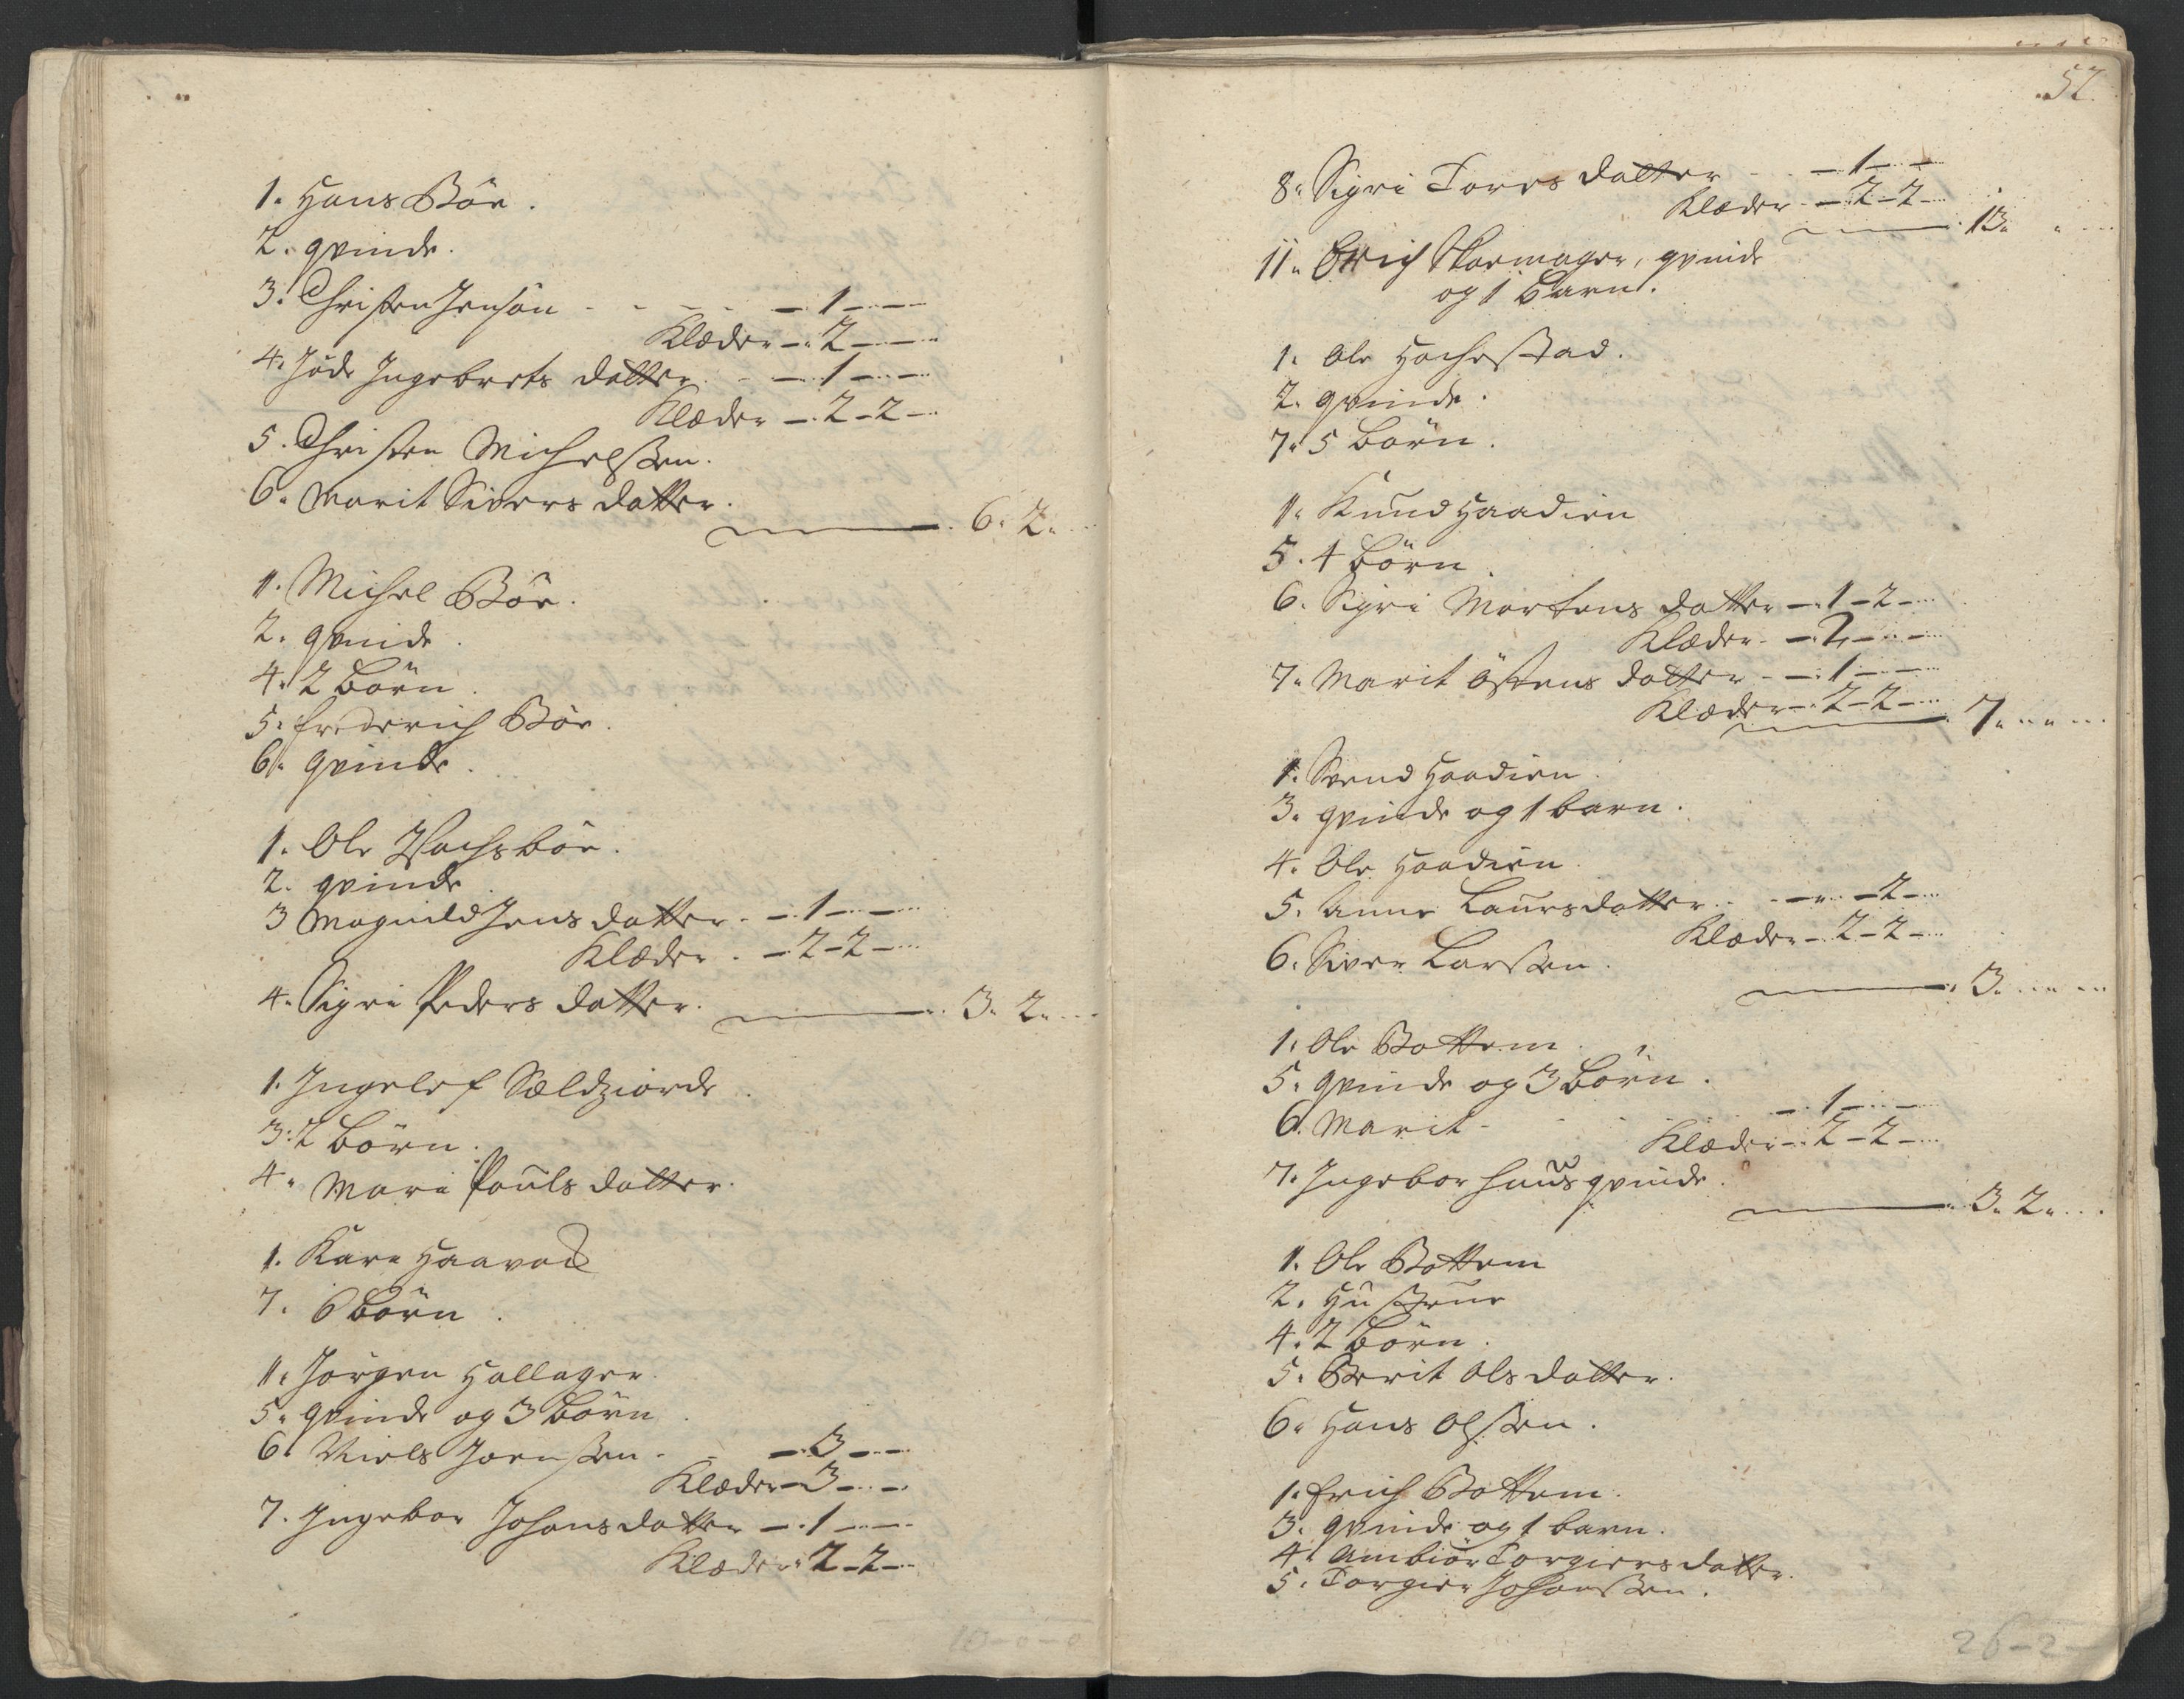 1. Hans Böe.
2. qvinde.
3. Christen Jensön - - - - 1 - -
Klæder - 2 - -
4. Jöde Ingebrets datter - 1 - -
Klæder - 2 - 2 -
5. Christen Michelssen.
6. Marit Sivers datter.
6. 2.
1. Michel Böe.
2. qvinde.
4. 2 börn.
5. Friderich Böe.
6. qvinde.
1. Ole Wachsböe.
2. qvinde
3 Magnild Jens datter - 1 - -
Klæder - 2 - 2 -
4. Sigri Peders datter.
3. 2.
1. Ingelef Sældziorde.
3. 2 börn.
4. Mari Pouls datter.
1. Kari Haavold
7. 6 börn.
1. Jörgen Hallager.
5. qvinde og 3 börn.
6. Niels Joenssen - - 3 - -
Klæder - 3 - -
7. Ingebor Johans datter - 1 - -
Klæder 2 - 2 -
10 - 0 - 0
52.
8. Sigri Tores datter - - 1 - -
Klæder - 2 - 2 -
13.
11. Erich Skomager, qvinde
og 1 barn.
1. Ole Hochestad.
2. qvinde.
7. 5 börn.
1. Knud Haadien
5. 4 börn.
6. Sigri Mortens datter - 1 - 2 -
Klæder - 2 - -
7. Marit Östens datter - 1 - -
Klæder - 2 - 2 -
7.
1. Svend Haadien.
3. qvinde og 1 barn.
4. Ole Haadien.
5. Anne Laursdatter - - 2 -
Klæder - 2 - 2 -
6. Siver Larssen.
3.
1. Ole Bottem.
5. qvinde og 3 börn.
6. Marit - - 1 - -
Klæder - 2 - 2 -
7. Ingebor huusqvinde.
3. 2.
1. Ole Bottem
2. Hustrue
4. 2 börn.
5. Berit Ols datter.
6. Hans Olssen.
1. Erich Bottem.
3. qvinde og 1 barn.
4. Ambiör Torgiers datter.
5. Torgier Johanssen.
26 - 2 -